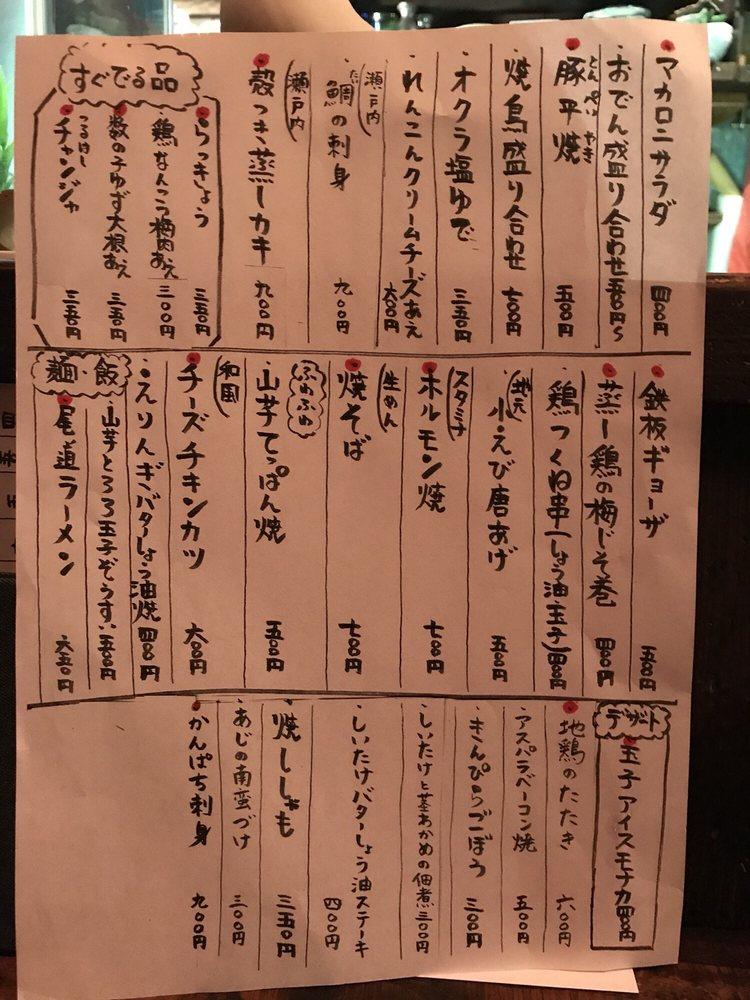 マカロニサラダ 四〇〇円
おでん盛り合わせ 五〇〇円〜
豚平焼 とんぺいやき 五〇〇円
焼鳥盛り合わせ 七〇〇円
オクラ塩ゆで 三五〇円
れんこんクリームチーズあえ 六〇〇円
瀬戸内 鯛の刺身 たい 九〇〇円
瀬戸内 殻つき蒸しカキ 九〇〇円
すぐでる品
らっきょう 三五〇円
鶏なんこつ梅肉あえ 三〇〇円
数の子ゆず大根あえ 三五〇円
つるはし チャンジャ 三五〇円
鉄板ギョーザ 五〇〇円
蒸し鶏の梅じそ巻 四〇〇円
鶏つくね串(しょう油玉子) 四〇〇円
地元 小えび唐あげ 五〇〇円
スタミナ ホルモン焼 七〇〇円
生めん 焼そば 七〇〇円
ふわふわ 山芋てっぱん焼 五〇〇円
和風 チーズチキンカツ 六〇〇円
えりんぎバターしょう油焼 四〇〇円
麺・飯
山芋とろろ玉子ぞうすい 五〇〇円
尾道ラーメン 六五〇円
デザート
玉子アイスモナカ 四〇〇円
地鶏のたたき 六〇〇円
アスパラベーコン焼 五〇〇円
きんぴらごぼう 三〇〇円
しいたけと茎わかめの佃煮 三〇〇円
しいたけバターしょう油ステーキ 四〇〇円
焼ししゃも 三五〇円
あじの南蛮づけ 三〇〇円
かんぱち刺身 九〇〇円